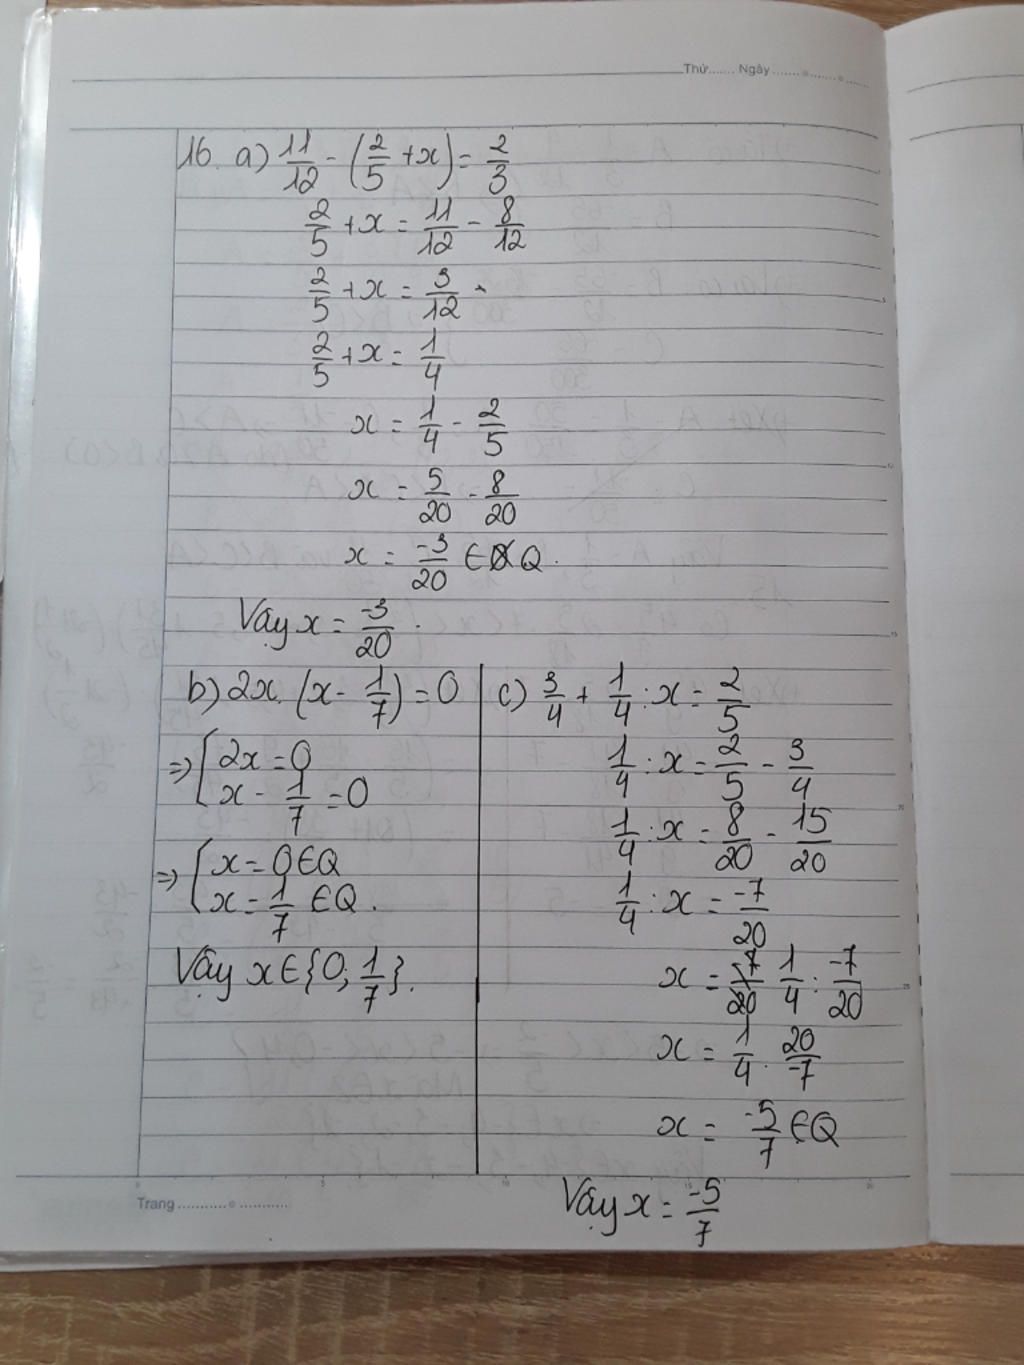 Thứ....... Ngày....... o ....... o .....
16. a) 11/12 - (2/5 + x) = 2/3
2/5 + x = 11/12 - 8/12
2/5 + x = 3/12
2/5 + x = 1/4
x = 1/4 - 2/5
x = 5/20 - 8/20
x = -3/20 ∈ Q.
Vậy x = -3/20.
b) 2x. (x - 1/7) = 0
=> [ 2x = 0
x - 1/7 = 0
=> [ x = 0 ∈ Q
x = 1/7 ∈ Q.
Vậy x ∈ {0; 1/7}.
c) 3/4 + 1/4 : x = 2/5
1/4 : x = 2/5 - 3/4
1/4 : x = 8/20 - 15/20
1/4 : x = -7/20
x = 1/4 : -7/20
x = 1/4 . 20/-7
x = -5/7 ∈ Q
Vậy x = -5/7
Trang ........... o ...........